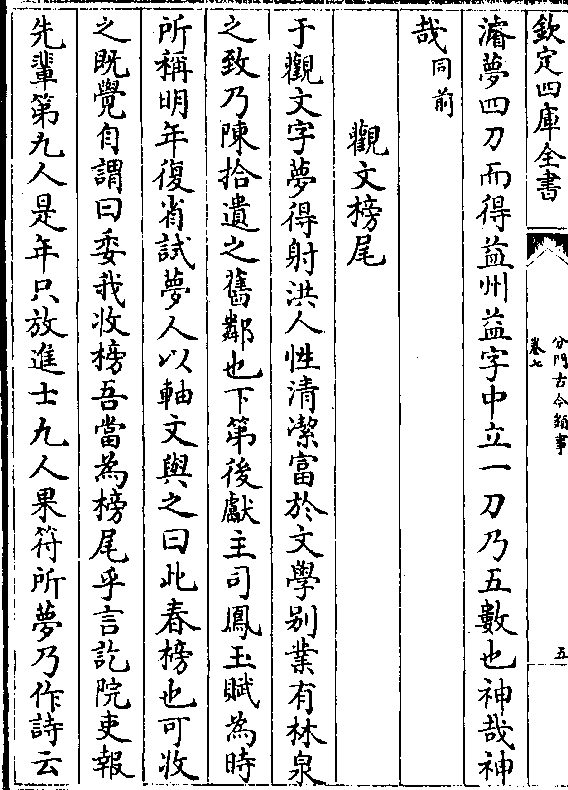 欽定四庫全書
分門古今類事
卷七
五
濬夢四刀而得益州益字中立一刀乃五數也神哉神
哉同前
觀文榜尾
于觀文字夢得射洪人性清潔富於文學别業有林泉
之致乃陳拾遺之舊鄰也下第後獻主司鳳玉賦為時
所稱明年復省試夢人以軸文與之曰此春榜也可收
之既覺自謂曰委我收榜吾當為榜尾乎言訖院吏報
先輩第九人是年只放進士九人果符所夢乃作詩云